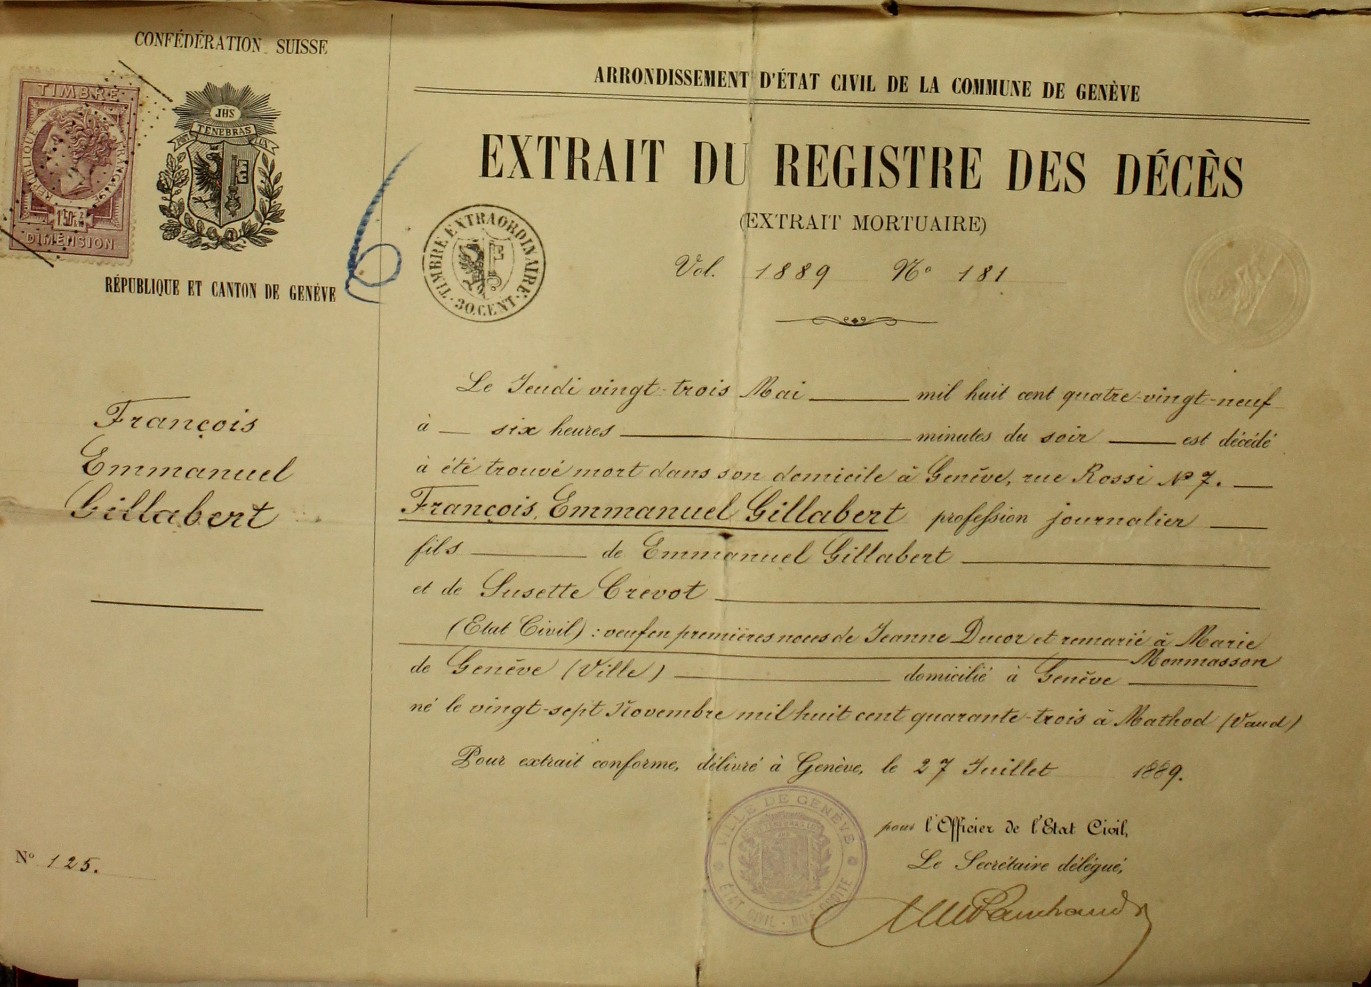 CONFÉDÉRATION SUISSE
TIMBRE
RÉPUBLIQUE FRANÇAISE
DIMENSION
JHS
POST TENEBRAS LUX
RÉPUBLIQUE ET CANTON DE GENÈVE
6
François
Emmanuel
Gillabert
Nº 125.
ARRONDISSEMENT D'ÉTAT CIVIL DE LA COMMUNE DE GENÈVE
EXTRAIT DU REGISTRE DES DÉCÈS
(EXTRAIT MORTUAIRE)
TIMBRE EXTRAORDINAIRE
30 CENT.
Vol. 1889 Nº 181
Le Jeudi vingt-trois Mai mil huit cent quatre-vingt-neuf
à six heures minutes du soir est décédé
à été trouvé mort dans son domicile à Genève, rue Rossi Nº 7.
François, Emmanuel Gillabert profession journalier
fils de Emmanuel Gillabert
et de Susette Crevot
(Etat Civil) : veuf en premières noces de Jeanne Ducor et remarié à Marie
Monmasson
de Genève (Ville) domicilié à Genève
né le vingt-sept Novembre mil huit cent quarante-trois à Mathod (Vaud)
Pour extrait conforme, délivré à Genève, le 27 Juillet 1889.
pour l'Officier de l'Etat Civil,
Le Secrétaire délégué,
VILLE DE GENÈVE
ÉTAT CIVIL - RIVE DROITE